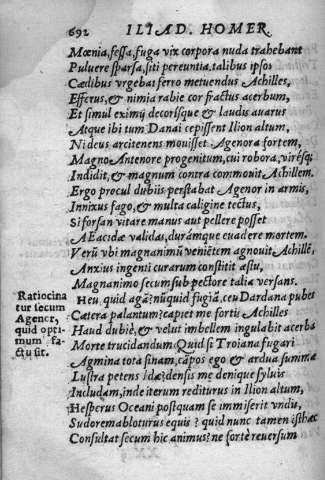 692 ILIAD. HOMER.
Mœnia, fessa, fuga vix corpora nuda trahebant
Puluere sparsa, siti pereuntia, talibus ipsos
Cædibus vrgebat ferro metuendus Achilles,
Efferus, & nimia rabie cor fractus acerbum,
Et simul eximij decorisque & laudis auarus
Atque ibi tum Danai cepissent Ilion altum,
Ni deus arcitenens mouisset Agenora fortem,
Magno Antenore progenitum, cui robora, virésque
Indidit, & magnum contra commouit Achillem.
Ergo procul dubiis perstabat Agenor in armis,
Innixus fago, & multa caligine tectus,
Si forsan vitare manus aut pellere posset
A Eacidæ validas, durámque euadere mortem.
Verũ vbi magnanimũ veniẽtem agnouit Achillẽ,
Anxius ingenti curarum constitit æstu,
Magnanimo secum sub pectore talia versans.
Heu, quid agã? nũquid fugiã, ceu Dardana pubes
Cætera palantum? capiet me fortis Achilles
Haud dubiè, & velut imbellem ingulabit acerba
Morte trucidandum. Quid si Troiana fugari
Agmina tota sinam, cãpos ego & ardua summæ
Lustra petens Idæ? densis me denique syluis
Includam, inde iterum rediturus in Ilion altum,
Hesperus Oceani postquam se immiserit vndis,
Sudorem abloturus equis? quid nunc tamen isthæc
Consultat secum hic animus? ne fortè reuersum
Ratiocina
tur secum
Agenor,
quid opti-
mum fa-
ctu sit.